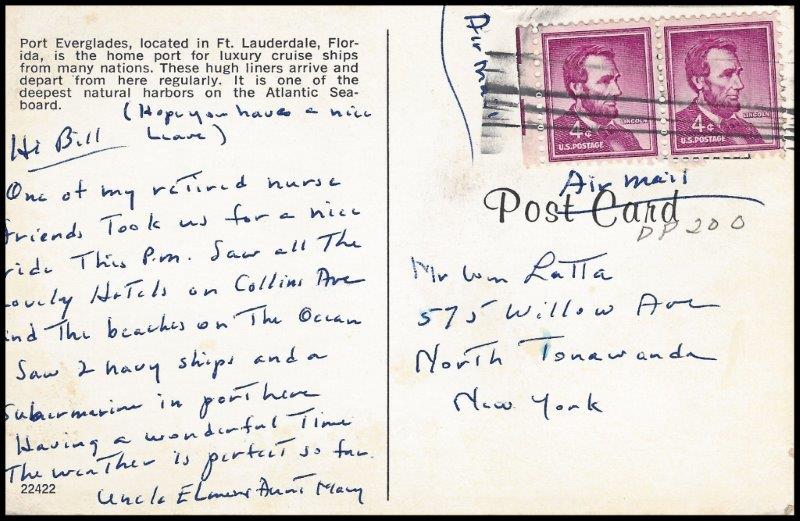 Port Everglades, located in Ft. Lauderdale, Flor-
ida, is the home port for luxury cruise ships
from many nations. These hugh liners arrive and
depart from here regularly. It is one of the
deepest natural harbors on the Atlantic Sea-
board.
(Hope you have a nice
Leave)
Hi Bill
One of my retired nurse
friends Took us for a nice
ride This P.m. Saw all The
Lovely Hotels on Collins Ave
and The beaches on The Ocean
Saw 2 navy ships and a
Submarine in port here
Having a wonderful Time
The weather is perfect so far.
Uncle Elmer & Aunt Mary
22422
Air mail
4¢
LINCOLN
U.S. POSTAGE
4¢
LINCOLN
U.S. POSTAGE
Air mail
Post Card
DP 200
Mr Wm Latta
575 Willow Ave
North Tonawanda
New York